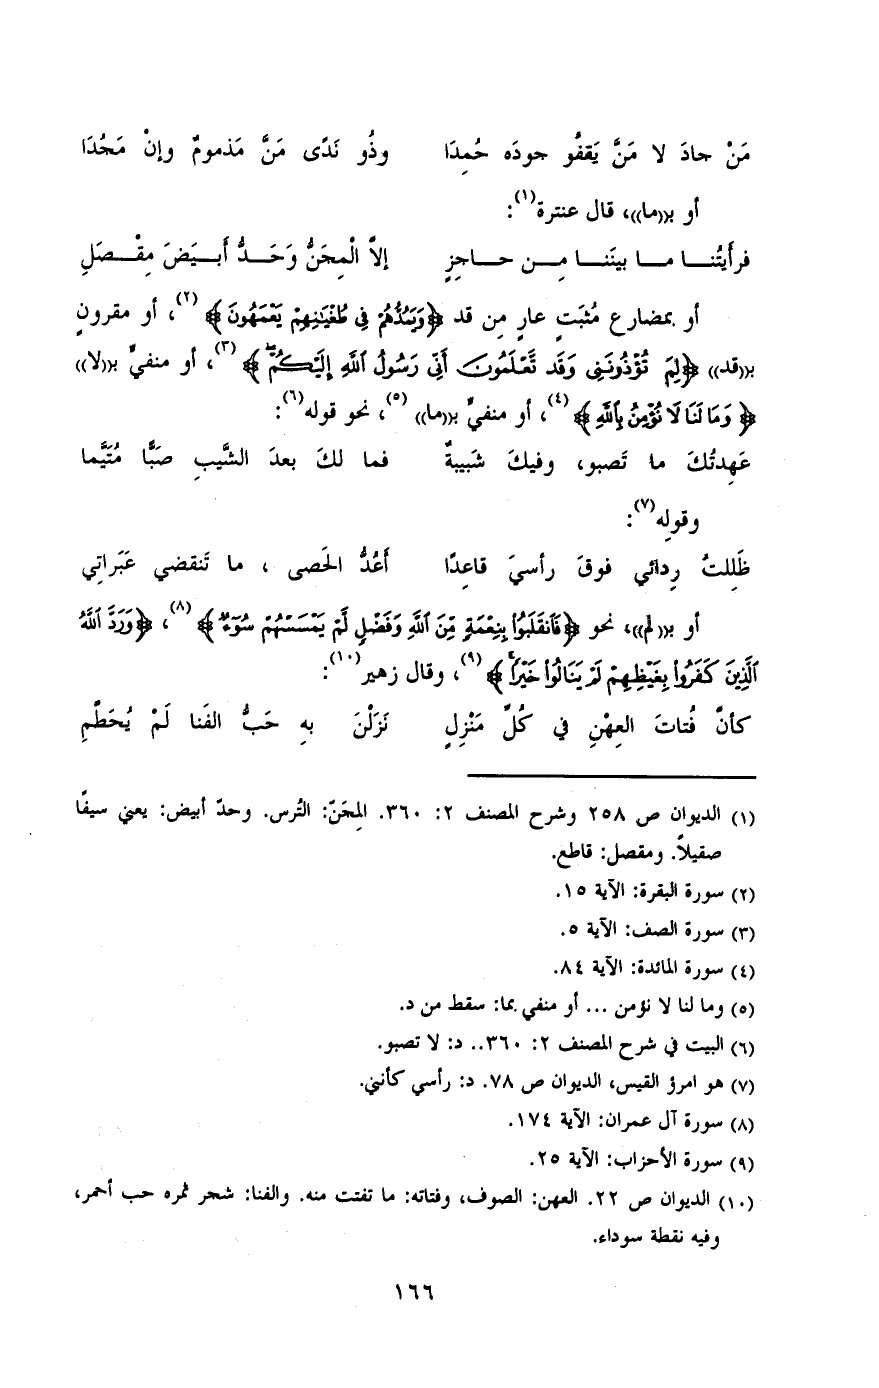 مَنْ جادَ لا مَنَّ يَقفُو جودَه حُمِدَا وذُو نَدًى مَنَّ مَذمومٌ وإنْ مَجُدَا
أو بـ((ما))، قال عنترة(١):
فرأيتُنـا مـا بينَنـا مِـن حـاجِزٍ إلاَّ الْمِجَنُّ وَحَـدُّ أبـيَضَ مِقْـصَلِ
أو بمضارع مُثبَتٍ عارٍ مِن قد ﴿وَيَمُدُّهُمْ فِي طُغْيَٰنِهِمْ يَعْمَهُونَ﴾(٢)، أو مقرونٍ
بـ((قد)) ﴿لِمَ تُؤْذُونَنِى وَقَد تَّعْلَمُونَ أَنِّى رَسُولُ ٱللَّهِ إِلَيْكُمْ﴾(٣)، أو منفيٍّ بـ((لا))
﴿وَمَا لَنَا لَا نُؤْمِنُ بِٱللَّهِ﴾(٤)، أو منفيٍّ بـ((ما))(٥)، نحو قوله(٦):
عَهِدتُكَ ما تَصبو، وفيكَ شَبيبةٌ فما لكَ بعدَ الشَّيبِ صَبًّا مُتَيَّما
وقولِه(٧):
ظَلِلتُ رِدائي فوقَ رأسيَ قاعِدًا أَعُدُّ الحَصى ، ما تَنقضي عَبَراتِي
أو بـ((لم))، نحو ﴿فَٱنقَلَبُوا۟ بِنِعْمَةٍ مِّنَ ٱللَّهِ وَفَضْلٍ لَّمْ يَمْسَسْهُمْ سُوٓءٌ﴾(٨)، ﴿وَرَدَّ ٱللَّهُ
ٱلَّذِينَ كَفَرُوا۟ بِغَيْظِهِمْ لَمْ يَنَالُوا۟ خَيْرًا﴾(٩)، وقال زهير(١٠):
كأنَّ فُتاتَ العِهْنِ في كُلِّ مَنْزِلٍ نَزَلْنَ بهِ حَبُّ الفَنا لَمْ يُحَطَّمِ
(١) الديوان ص ٢٥٨ وشرح المصنف ٢: ٣٦٠. المِجَنّ: التُرس. وحدّ أبيض: يعني سيفًا
صقيلاً. ومقصل: قاطع.
(٢) سورة البقرة: الآية ١٥.
(٣) سورة الصف: الآية ٥.
(٤) سورة المائدة: الآية ٨٤.
(٥) وما لنا لا نؤمن ... أو منفي بما: سقط من د.
(٦) البيت في شرح المصنف ٢: ٣٦٠.. د: لا تصبو.
(٧) هو امرؤ القيس، الديوان ص ٧٨. د: رأسي كأنني.
(٨) سورة آل عمران: الآية ١٧٤.
(٩) سورة الأحزاب: الآية ٢٥.
(١٠) الديوان ص ٢٢. العهن: الصوف، وفتاته: ما تفتت منه. والفنا: شجر ثمره حب أحمر،
وفيه نقطة سوداء.
١٦٦